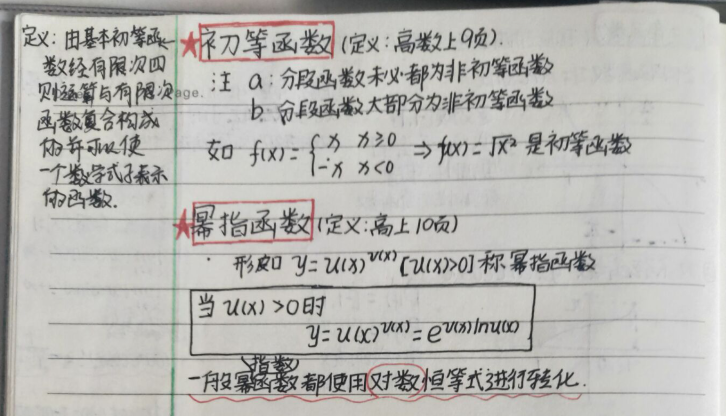 定义：由基本初等函
数经有限次四
则运算与有限次
函数复合构成
的并可以使
一个数学式子表示
的函数.
★初等函数(定义：高数上9页).
注 a：分段函数未必都为非初等函数
b 分段函数大部分为非初等函数
如 f(x)={x x≥0
-x x<0 ⇒ f(x)=√x² 是初等函数
★幂指函数(定义：高上10页)
形如 y=u(x)^v(x) [u(x)>0] 称幂指函数
当 u(x)>0时
y=u(x)^v(x)=e^v(x)lnu(x)
指数
一般幂函数都使用对数恒等式进行转化.
age.